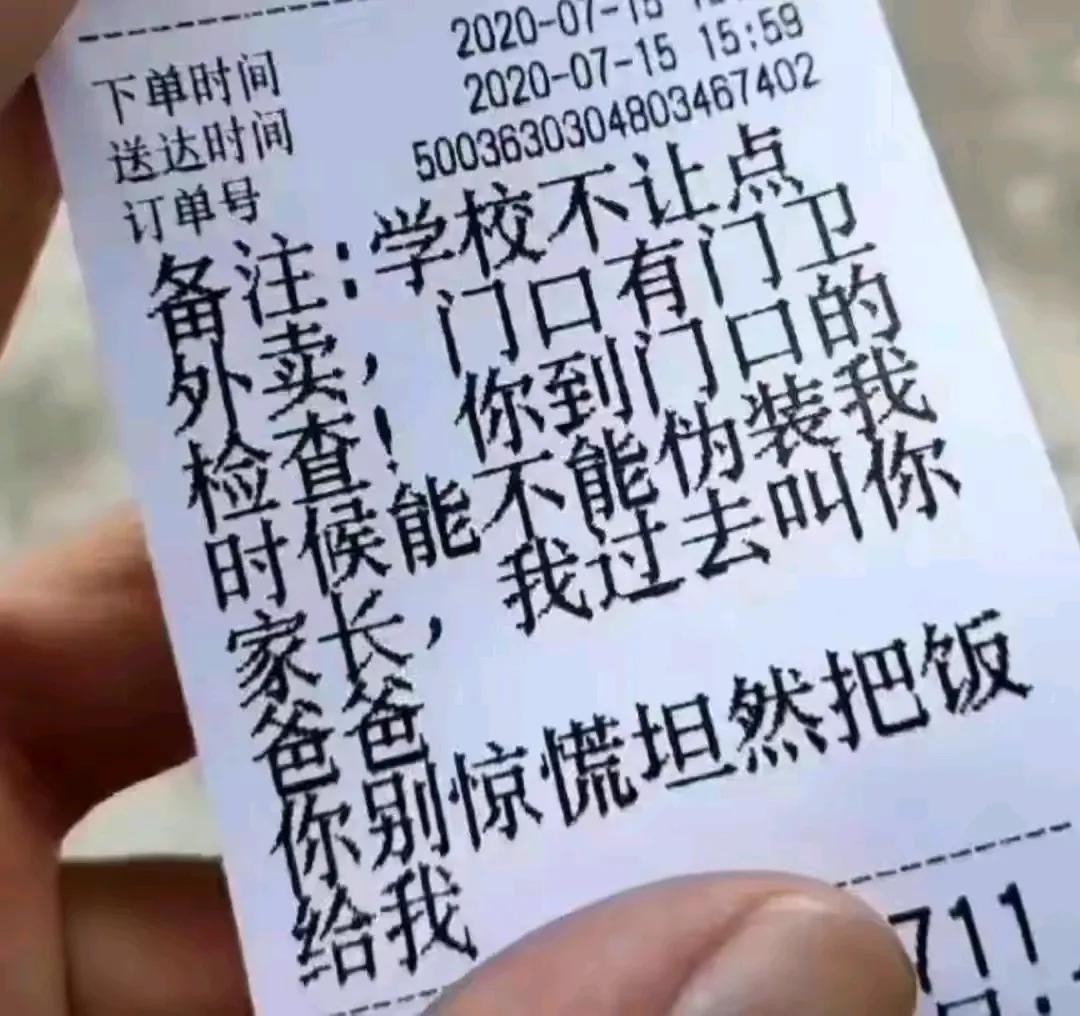 下单时间 2020-07-15
送达时间 2020-07-15 15:59
订单号 5003630304803467402
备注:学校不让点
外卖,门口有门卫
检查!你到门口的
时候能不能伪装我
家长,我过去叫你
爸爸
你别惊慌坦然把饭
给我
711